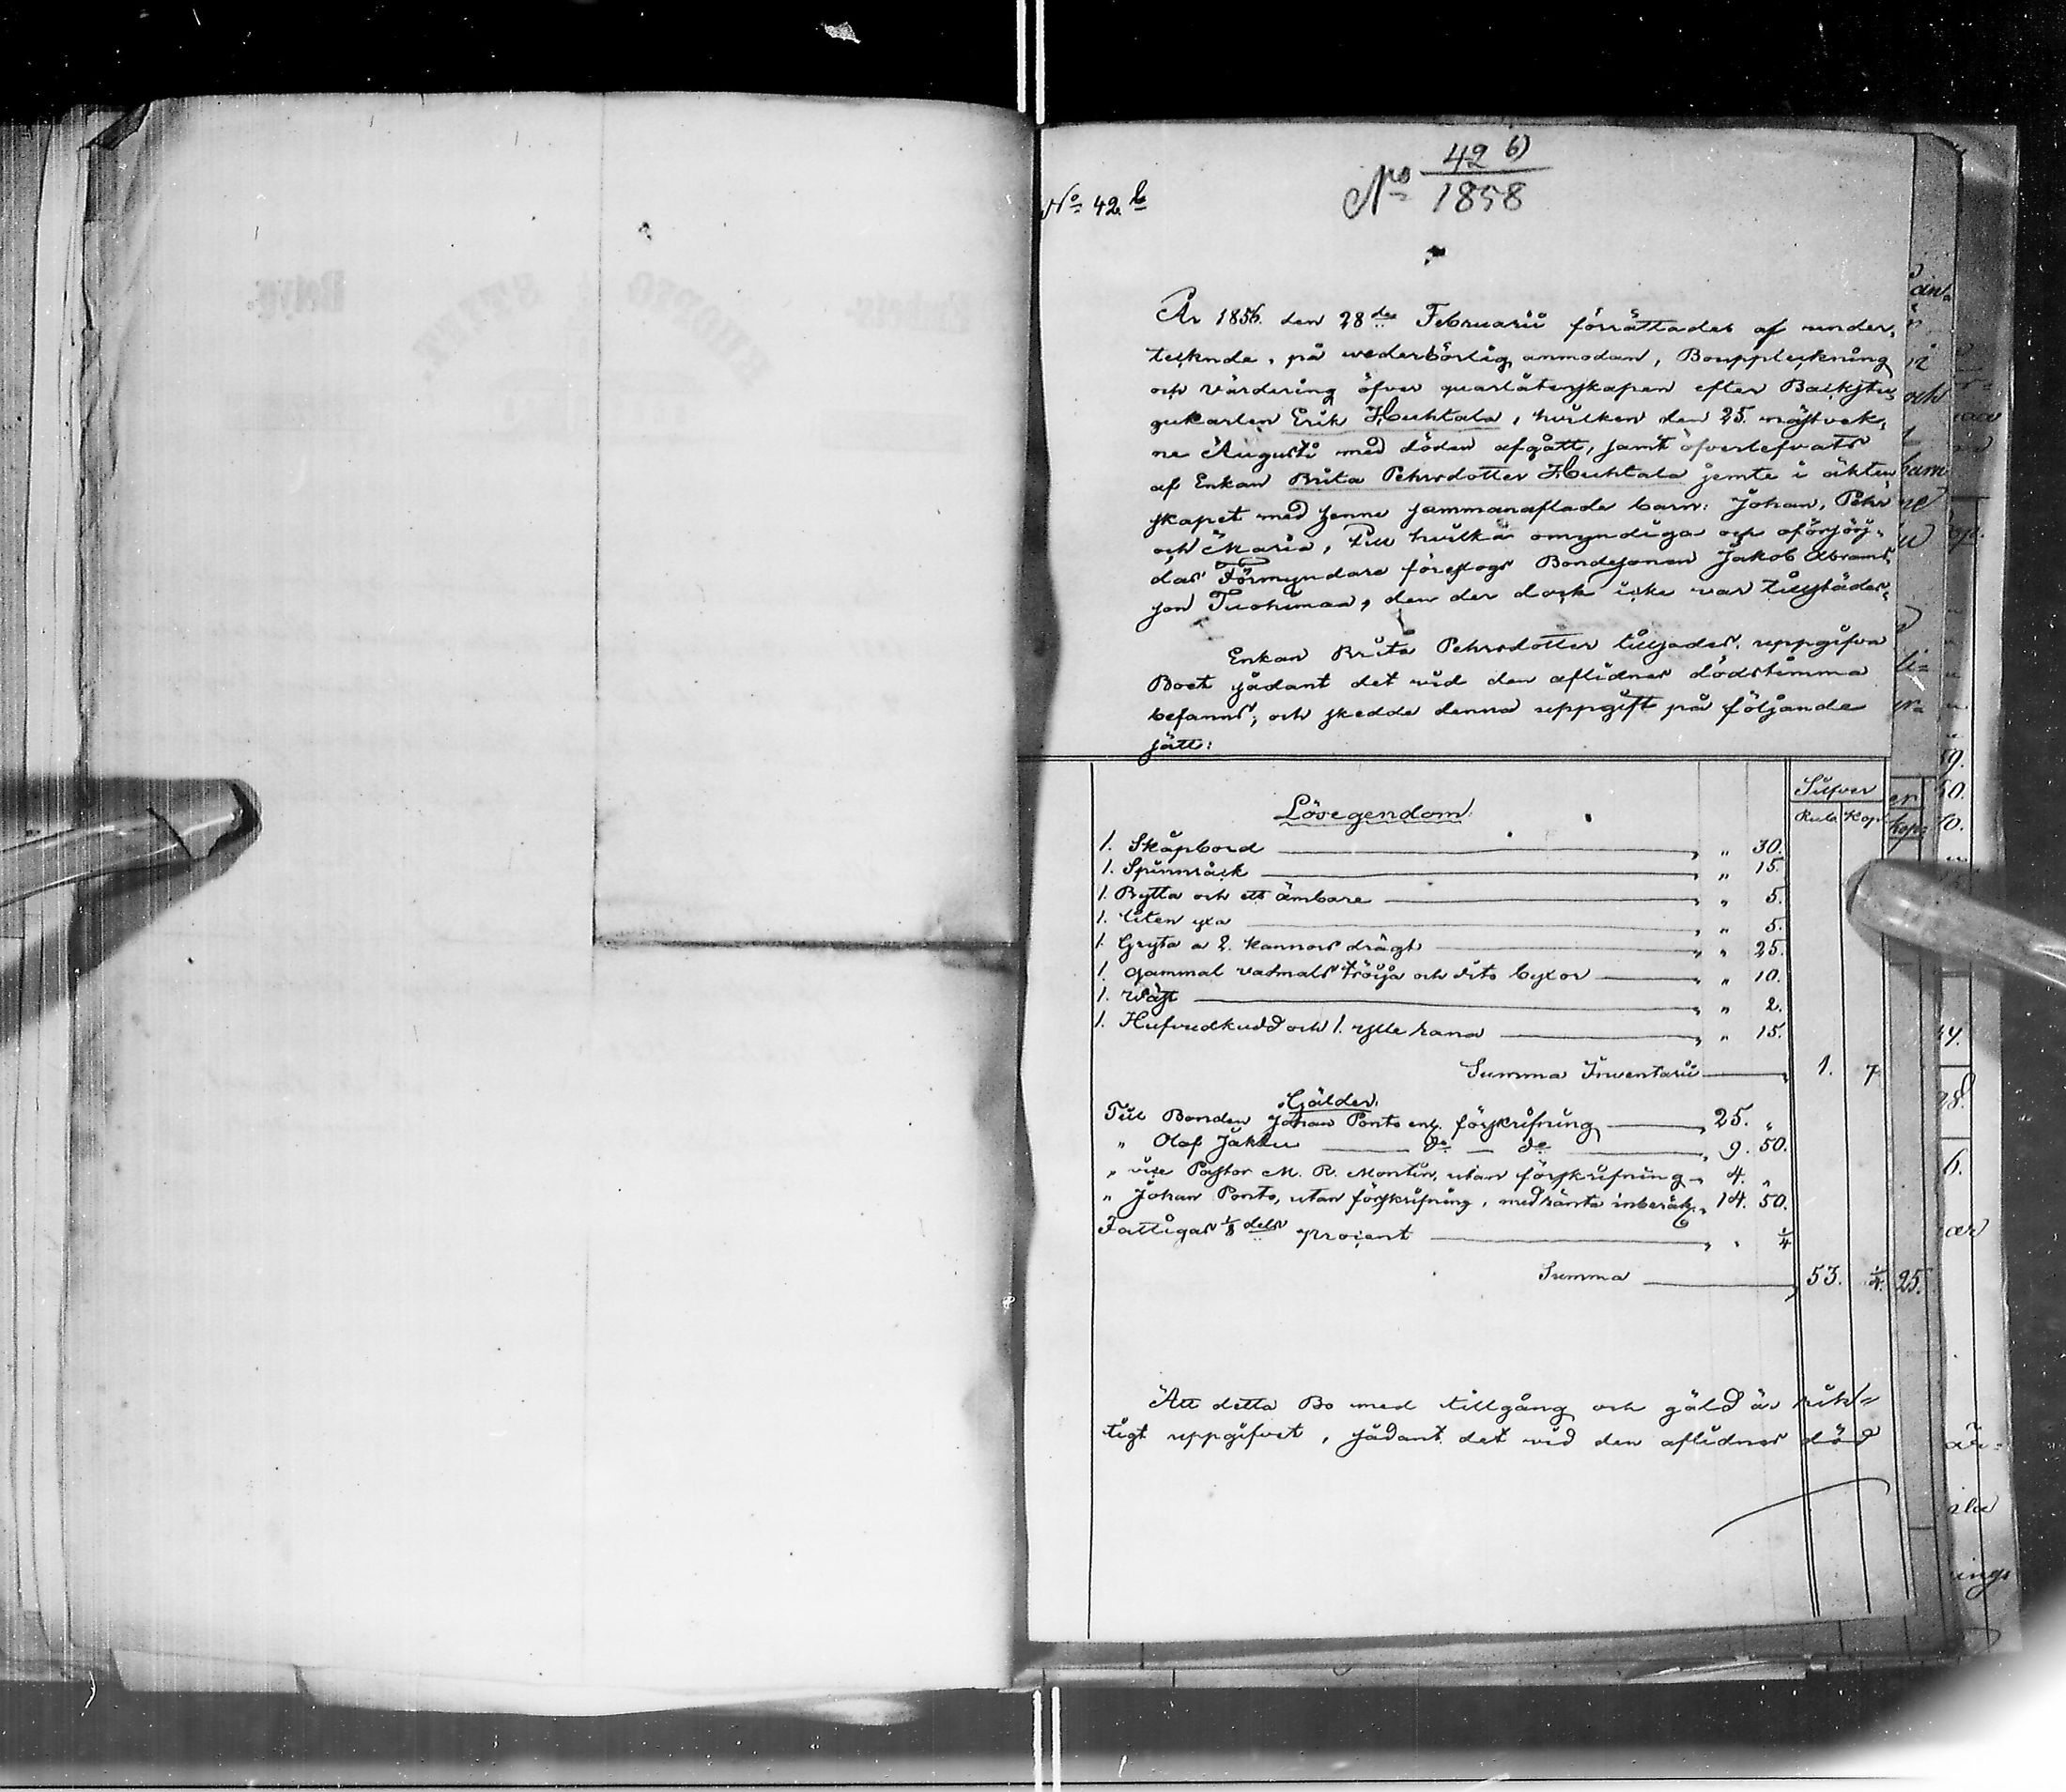 No 42 b)
1858
No 42 b
År 1856. den 28de Februarii förrättades af under-
tecknade, på wederbörlig anmodan, Bouppteckning
och Värdering öfver quarlåtenskapen efter Backstu-
gukarlen Erik Huhtala, hvilken den 25. nästvek-
ne Augusti med döden afgått, samt öfverlefvats
af Enkan Brita Pehrsdotter Huhtala jemte i äkten-
skapet med henne sammanaflade barn: Johan, Pehr
och Maria, till hvilka omyndiga och oförsörj-
das Förmyndare föreslogs Bondesonen Jakob Abrams
son Tuohimaa, den der dock icke var tillstädes.
Enkan Brita Pehrsdotter tillsades uppgifva
Boet sådant det vid den aflidnes dödstimma
befanns, och skedde denna uppgift på följande
sätt:
Silfver
Lösegendom.
Rub. Kop.
1. Skåpbord " 30.
1. Spinnråck " 15.
1. Bytta och ett ämbare " 5.
1. liten yxa " 5.
1. Gryta a 2. kannors drägt " 25.
1. gammal vadmals tröija och dito byxor " 10.
1. Wäst " 2.
1. Hufvudkudd och 1. rylle rana " 15.
Summa Inventarii 1. 7
Gälder.
Till Bonden Johan Ponto enl. förskrifning 25. "
" Olof Jakku do do 9. 50.
" vice Pastor M. R. Montin, utan förskrifning 4. "
" Johan Ponto, utan förskrifning, med ränta inberäk. 14. 50.
Fattigas 1/8 dels procent " " 1/4
Summa 53. 1/4. 25.
Att detta Bo med tillgång och gäld är rik-
tigt uppgifvet, sådant det vid den aflidnes död